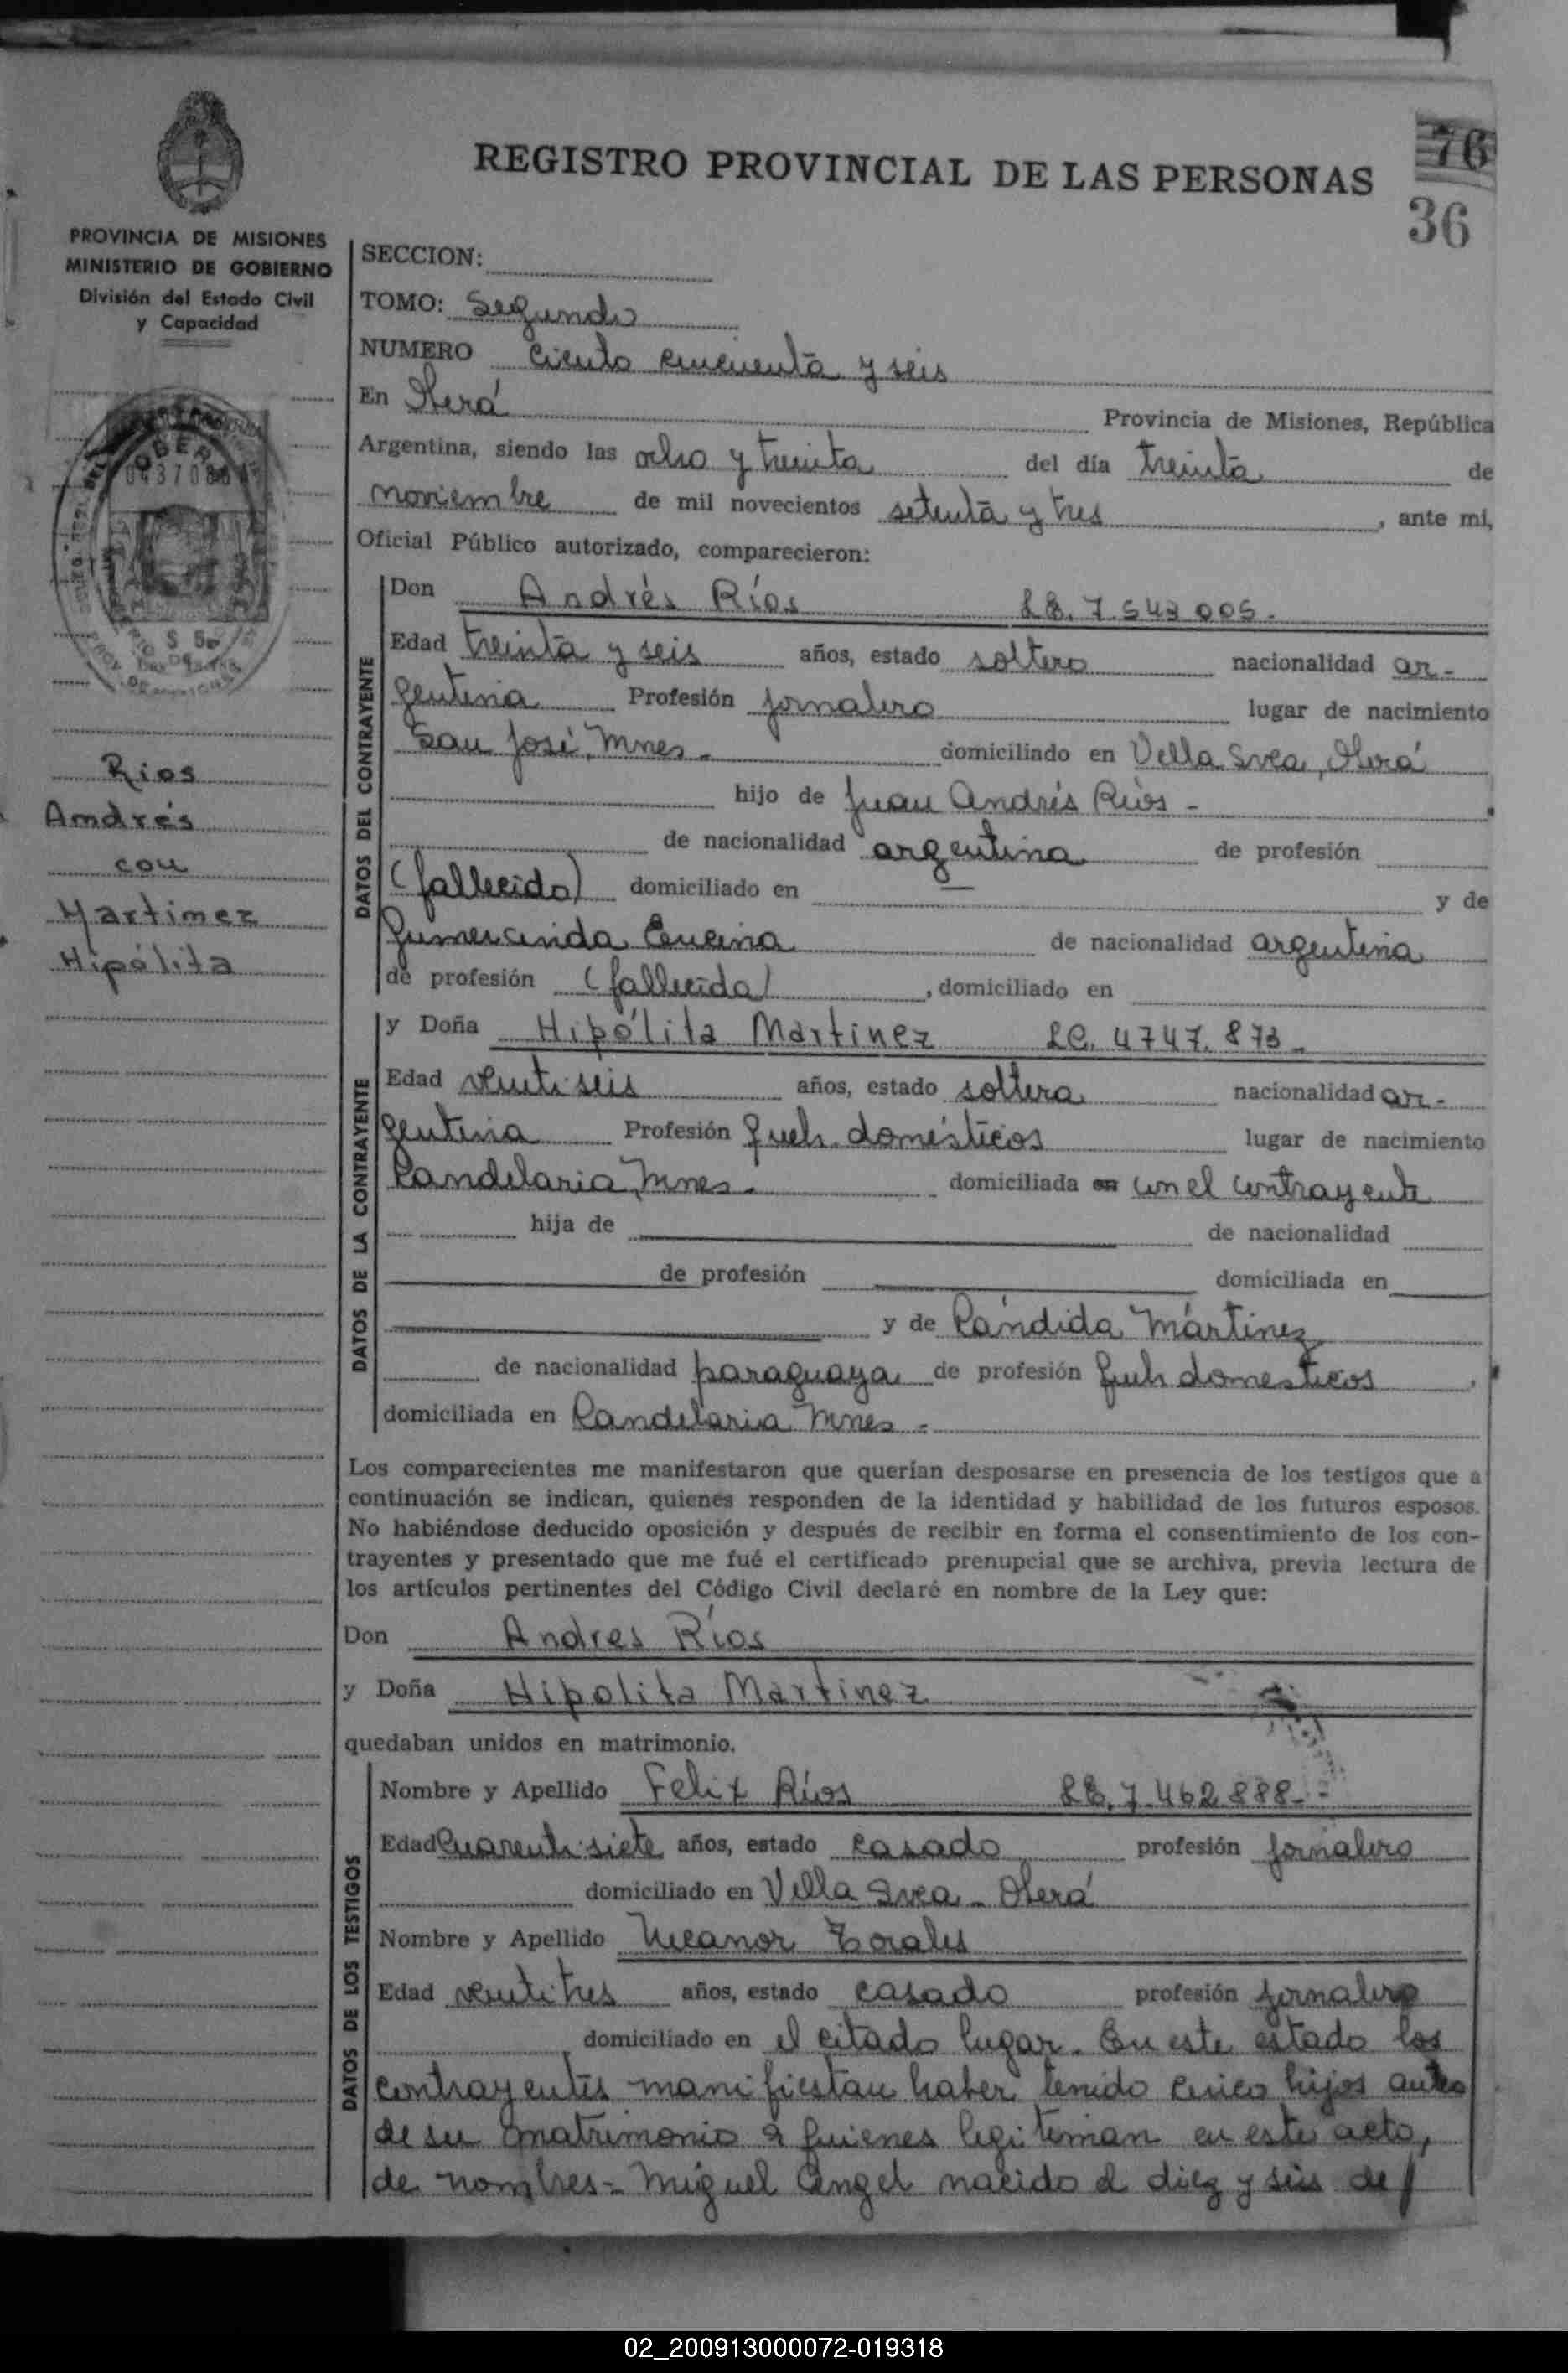 REGISTRO PROVINCIAL DE LAS PERSONAS
76
36
PROVINCIA DE MISIONES
MINISTERIO DE GOBIERNO
División del Estado Civil
y Capacidad
$ 5
Rios
Andrés
con
Martinez
Hipólita
SECCION:
TOMO: Segundo
NUMERO ciento cincuenta y seis
En Oberá Provincia de Misiones, República
Argentina, siendo las ocho y treinta del día treinta de
noviembre de mil novecientos setenta y tres, ante mi,
Oficial Público autorizado, comparecieron:
DATOS DEL CONTRAYENTE
Don Andrés Ríos LE. 7.543.005.-
Edad treinta y seis años, estado soltero nacionalidad ar-
gentina Profesión jornalero lugar de nacimiento
San José, Mnes.- domiciliado en Villa Svea, Oberá
hijo de Juan Andrés Ríos -
de nacionalidad argentina de profesión
(fallecido) domiciliado en — y de
Gumercinda Encina de nacionalidad argentina
de profesión (fallecida), domiciliado en
DATOS DE LA CONTRAYENTE
y Doña Hipólita Martinez LC. 4747.873-
Edad veintiseis años, estado soltera nacionalidad ar-
gentina Profesión queh. domésticos lugar de nacimiento
Candelaria, Mnes.- domiciliada en con el contrayente
hija de de nacionalidad
de profesión domiciliada en
y de Cándida Mártinez
de nacionalidad paraguaya de profesión queh domesticos,
domiciliada en Candelaria Mnes -
Los comparecientes me manifestaron que querían desposarse en presencia de los testigos que a
continuación se indican, quienes responden de la identidad y habilidad de los futuros esposos.
No habiéndose deducido oposición y después de recibir en forma el consentimiento de los con-
trayentes y presentado que me fué el certificado prenupcial que se archiva, previa lectura de
los artículos pertinentes del Código Civil declaré en nombre de la Ley que:
Don Andres Ríos
y Doña Hipolita Martinez
quedaban unidos en matrimonio.
DATOS DE LOS TESTIGOS
Nombre y Apellido Felix Ríos LE. 7.462.888.-
Edad Cuarentisiete años, estado casado profesión jornalero
domiciliado en Villa Svea - Oberá
Nombre y Apellido Nicanor Torales
Edad veintitres años, estado casado profesión jornalero
domiciliado en el citado lugar. En este estado los
contrayentes manifiestan haber tenido cinco hijos antes
de su matrimonio a quienes legitiman en este acto,
de nombres = Miguel Angel nacido el diez y seis de
02_200913000072-019318